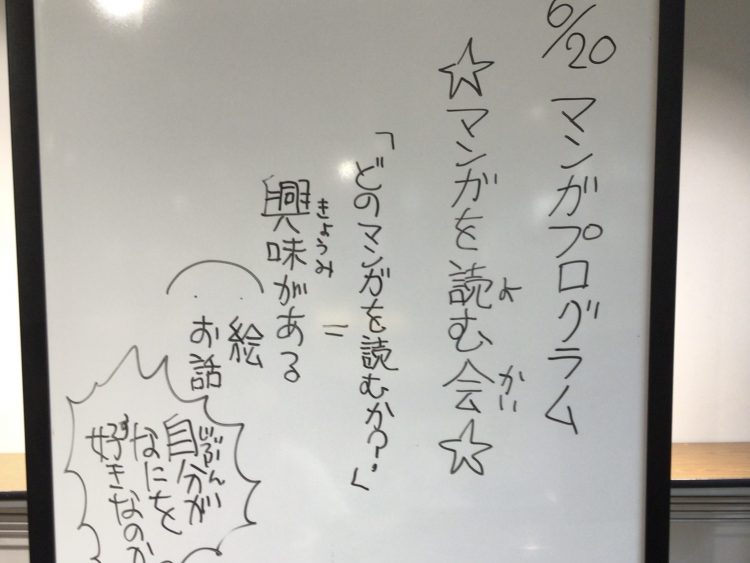 6/20 マンガプログラム
☆マンガを読む会☆
よ かい
「どのマンガを読むか?」
=
興味がある
きょうみ
絵
お話
自分が
じぶん
なにを
好きなのか
す